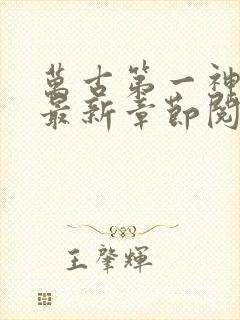 萬古第一神
最新章節閱
王肇輝